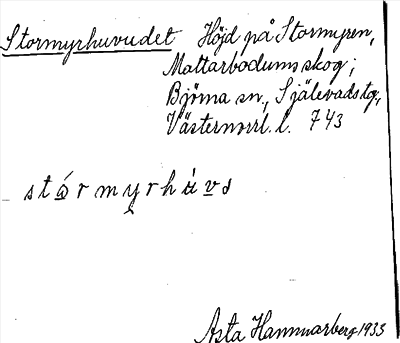 Stormyrhuvudet Höjd på Stormyren,
Mattarbodums skog;
Björna sn., Själevads tg.,
Västernorrl. l. 743
stórmyrhùvə
Asta Hammarberg 1933